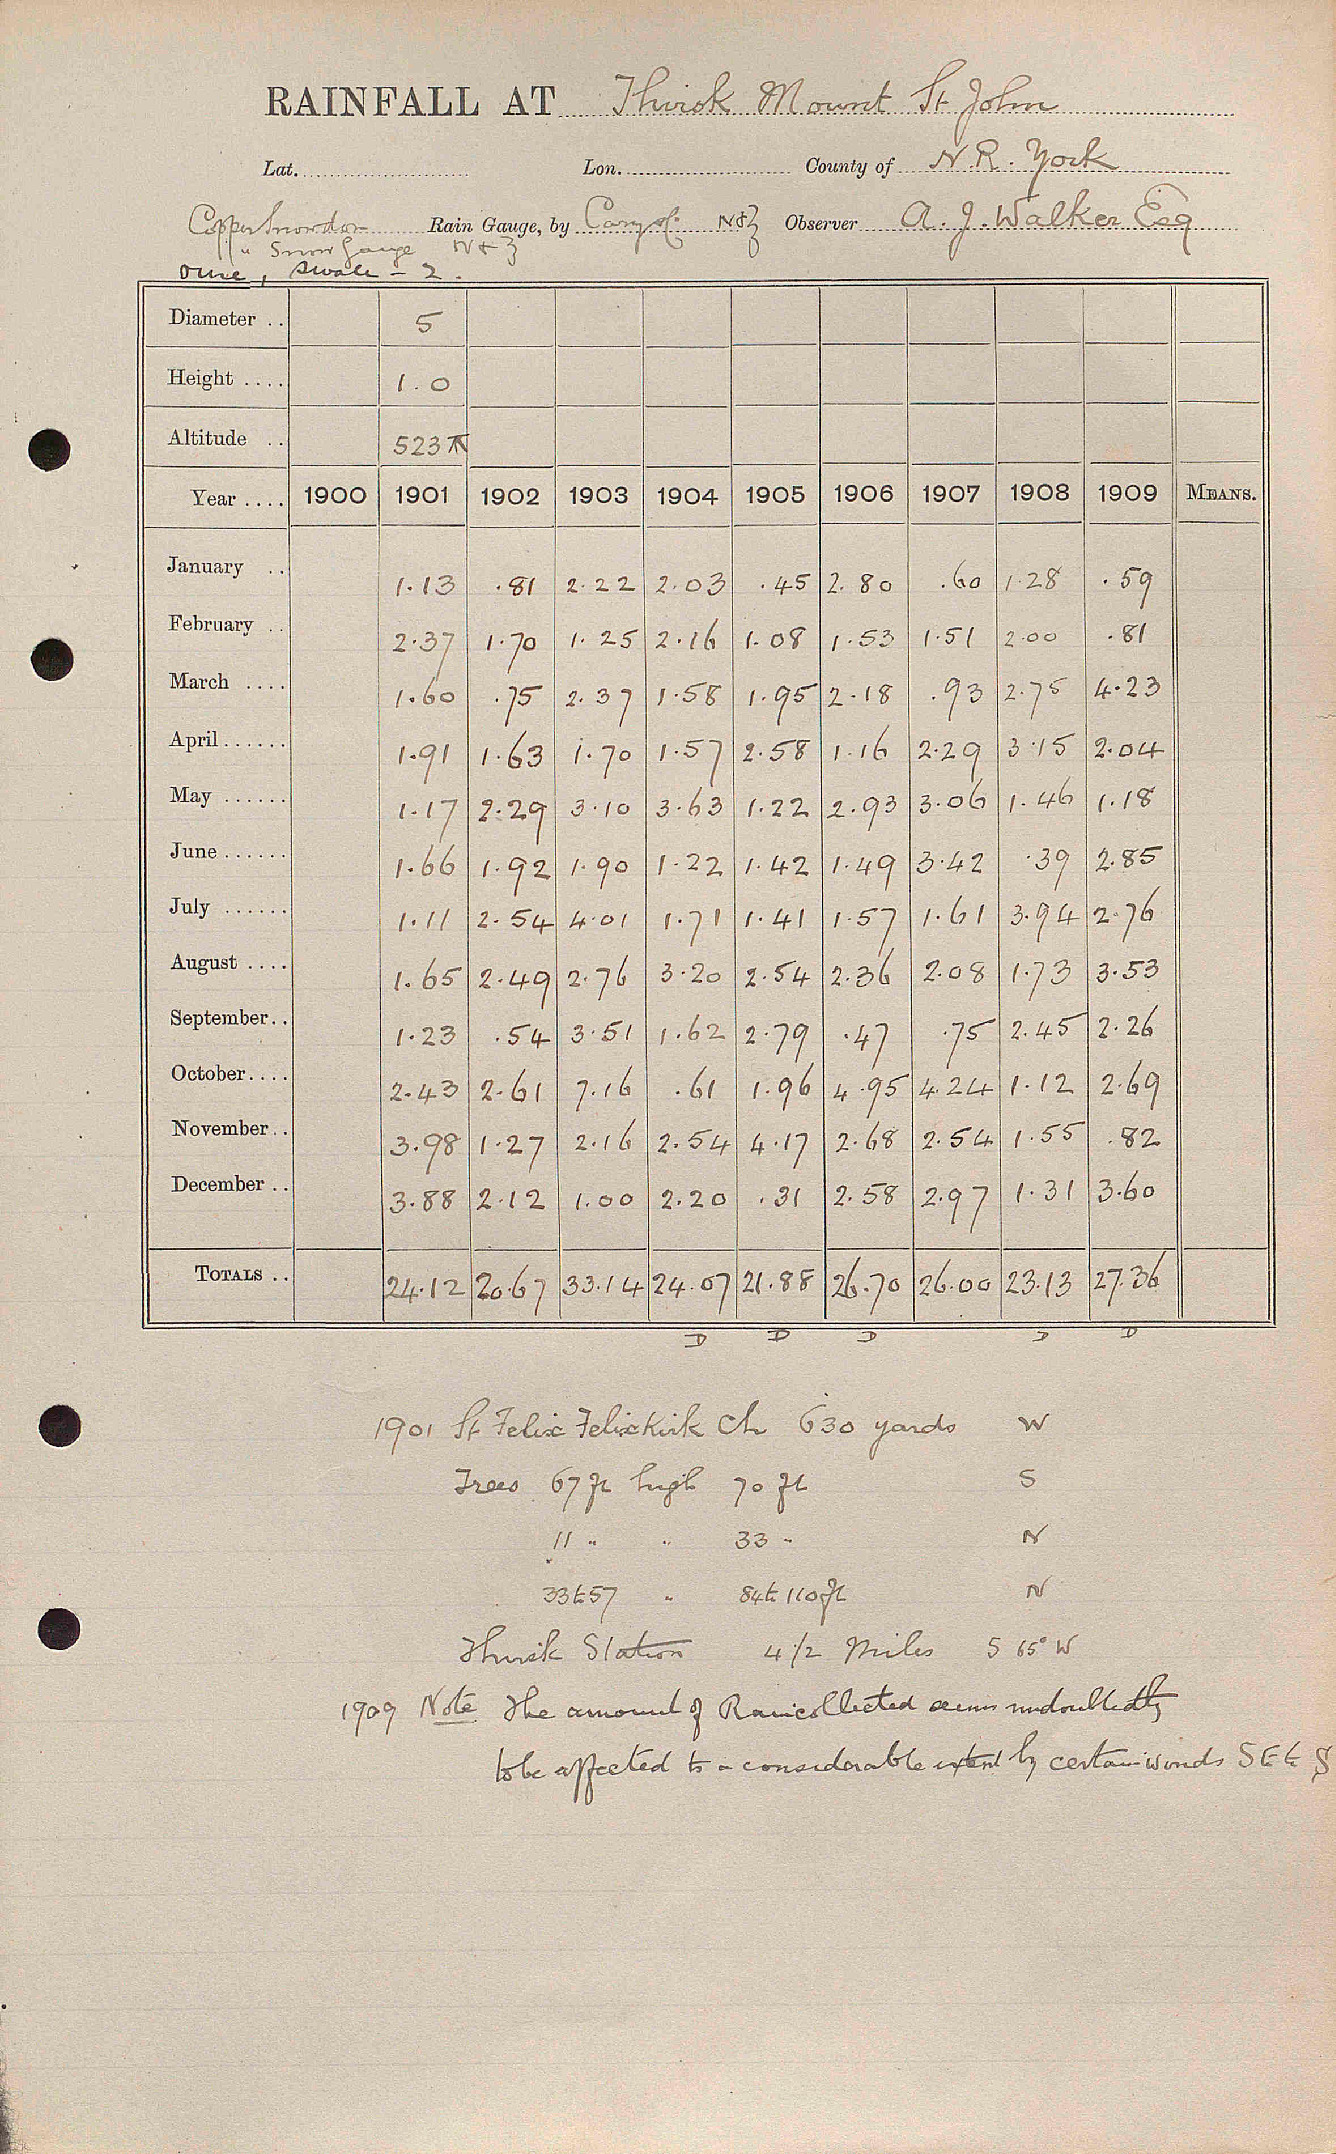 RAINFALL AT Thirsk Mount St John
Lat. Lon. County of N.R. York
Copper Snowdon Rain Gauge, by Cary & Co. N & Z Observer A. J. Walker Esq
" Snow Gauge N & Z
Ouse, Swale - 2.
Diameter .. 5
Height .... 1.0
Altitude .. 523
Year .... 1900 1901 1902 1903 1904 1905 1906 1907 1908 1909 MEANS.
January .. 1.13 .81 2.22 2.03 .45 2.80 .60 1.28 .59
February .. 2.37 1.70 1.25 2.16 1.08 1.53 1.51 2.00 .81
March .... 1.60 .75 2.37 1.58 1.95 2.18 .93 2.75 4.23
April...... 1.91 1.63 1.70 1.57 2.58 1.16 2.29 3.15 2.04
May ...... 1.17 2.29 3.10 3.63 1.22 2.93 3.06 1.46 1.18
June...... 1.66 1.92 1.90 1.22 1.42 1.49 3.42 .39 2.85
July ...... 1.11 2.54 4.01 1.71 1.41 1.57 1.61 3.94 2.76
August .... 1.65 2.49 2.76 3.20 2.54 2.36 2.08 1.73 3.53
September.. 1.23 .54 3.51 1.62 2.79 .47 .75 2.45 2.26
October.... 2.43 2.61 7.16 .61 1.96 4.95 4.24 1.12 2.69
November.. 3.98 1.27 2.16 2.54 4.17 2.68 2.54 1.55 .82
December .. 3.88 2.12 1.00 2.20 .31 2.58 2.97 1.31 3.60
TOTALS .. 24.12 20.67 33.14 24.07 21.88 26.70 26.00 23.13 27.36
D D D D D
1901 St Felix Felixkirk Ch 630 yards W
Trees 67 ft high 70 ft S
11 " " 33 " N
33 to 57 " 84 to 110 ft N
Thirsk Station 4 1/2 Miles S 65° W
1909 Note The amount of Rain collected seems undoubtedly
to be affected to a considerable extent by certain winds S E to S